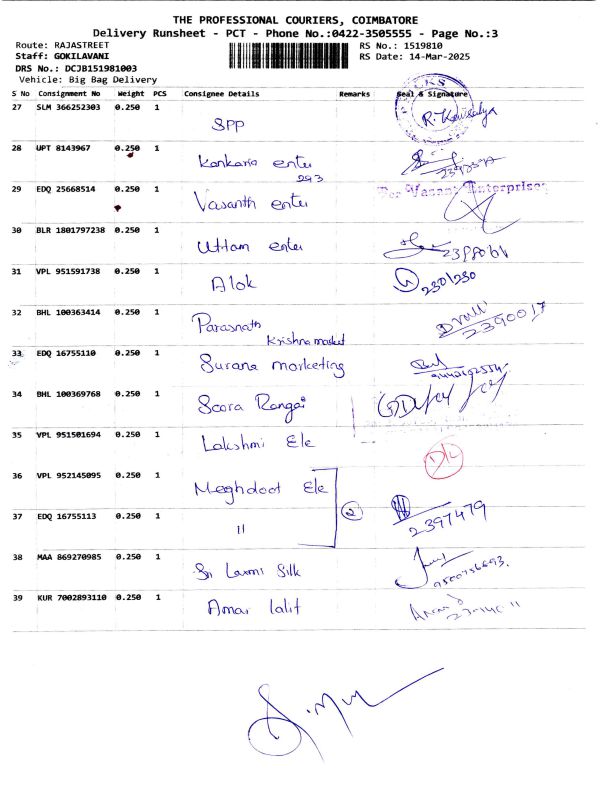 THE PROFESSIONAL COURIERS, COIMBATORE
Delivery Runsheet - PCT - Phone No.:0422-3505555 - Page No.:3
Route: RAJASTREET RS No.: 1519810
Staff: GOKILAVANI RS Date: 14-Mar-2025
DRS No.: DCJB151981003
Vehicle: Big Bag Delivery
S No Consignment No Weight PCS Consignee Details Remarks Seal & Signature
27 SLM 366252303 0.250 1 SPP R. Kousalya
28 UPT 8143967 0.250 1 Kankaria enter
293
29 EDQ 25668514 0.250 1 Vasanth enter For Vasant Enterprises
30 BLR 1801797238 0.250 1 Uttam enter
31 VPL 951591738 0.250 1 Alok 230/230
32 BHL 100363414 0.250 1 Parasnath 2390017
Krishna market
33 EDQ 16755110 0.250 1 Surana marketing
34 BHL 100369768 0.250 1 Scora Rangai
35 VPL 951501694 0.250 1 Lakshmi Ele D/L
36 VPL 952145095 0.250 1 Meghdoot Ele 2
37 EDQ 16755113 0.250 1 " 2397479
38 MAA 869270985 0.250 1 Sri Laxmi Silk
39 KUR 7002893110 0.250 1 Amar lalit